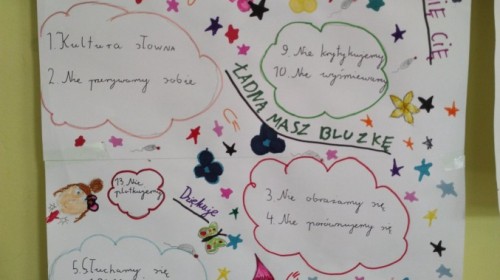 1. Kultura słowna
2. Nie przerywamy sobie
9. Nie krytykujemy
10. Nie wyśmiewamy
ŁADNĄ MASZ BLUZKĘ
CIĘ
13. Nie
plotkujemy
Dziękuję
3. Nie obrażamy się
4. Nie porównujemy się
5. Słuchamy się